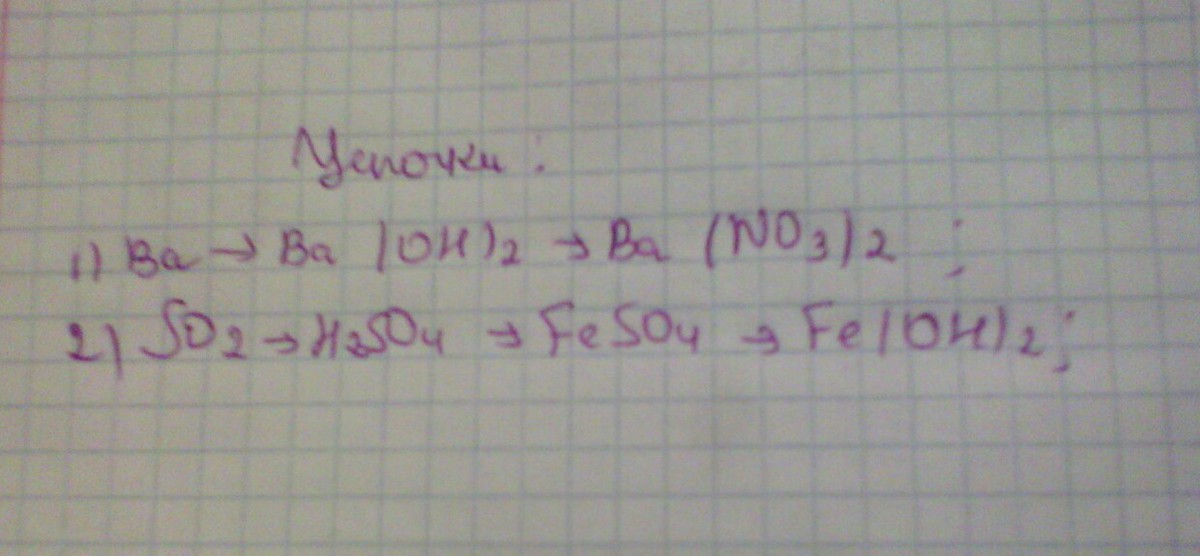 Цепочки:
1) Ba → Ba (OH)2 → Ba (NO3)2 ;
2) SO2 → H2SO4 → FeSO4 → Fe(OH)2;